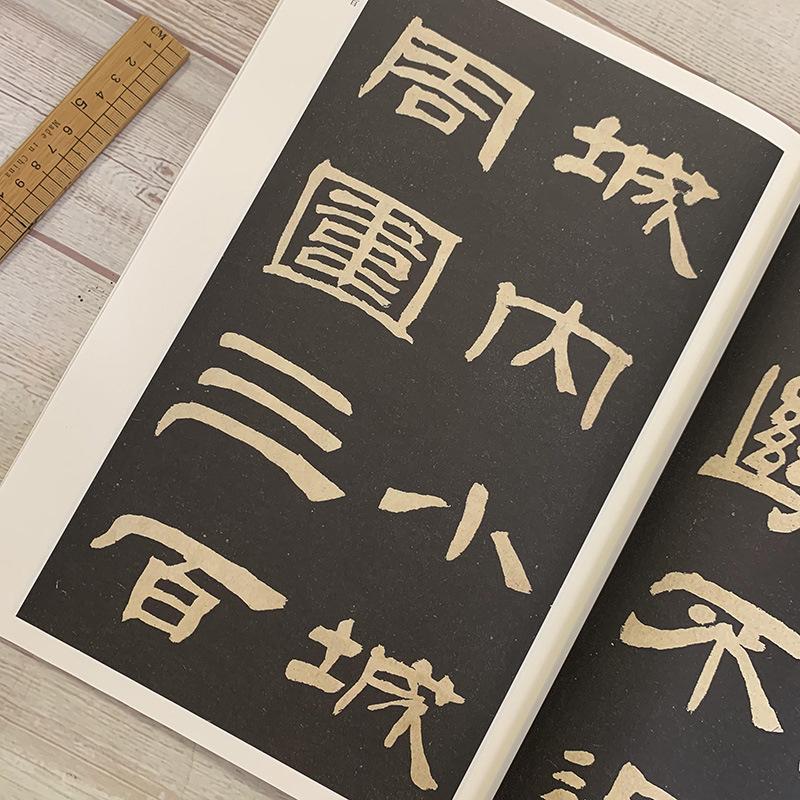 不
城内小城
周圍三百
百
CM
1 2 3 4 5 6 7 8 9
Made in China